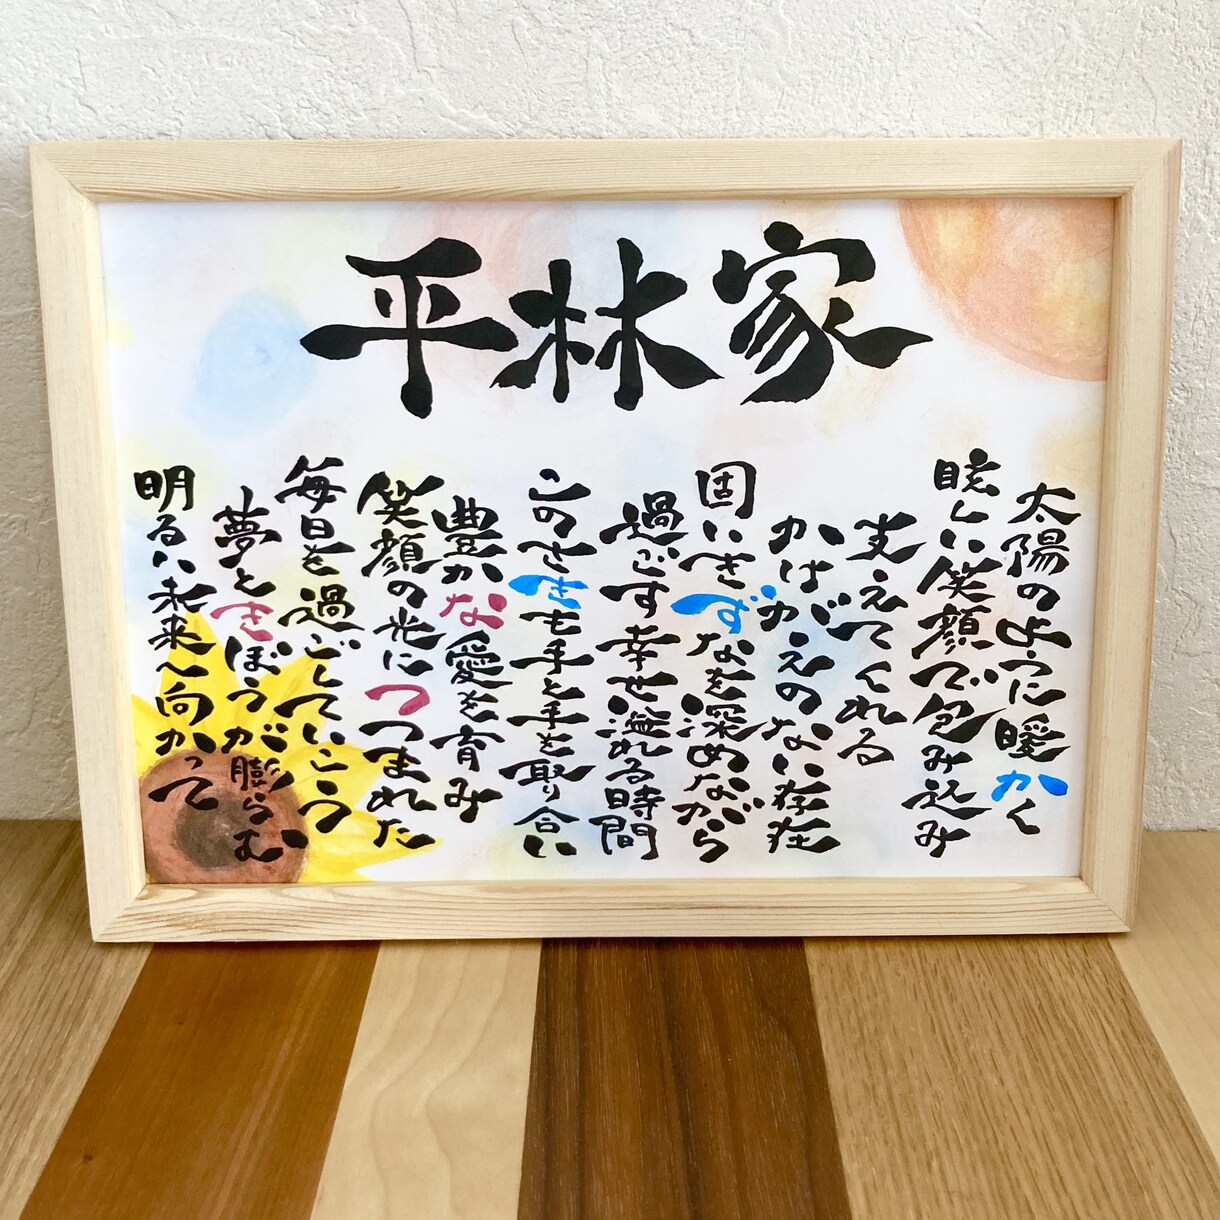 平林家
太陽のように暖かく
眩しい笑顔で包み込み
支えてくれる
かけがえのない存在
固いきずなを深めながら
過ごす幸せ溢れる時間
このさきも手と手を取り合い
豊かな愛を育み
笑顔の光につつまれた
毎日を過ごしていこう
夢ときぼうが膨らむ
明るい未来へ向かって